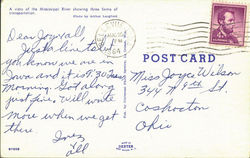 A view of the Mississippi River showing three forms of
transportation.
Photo by Arthur Langham
Dear Joy & all,
Just a line to let
you know we are in
Iowa and it is 9:30 Tues
Morning. Got along
just fine, will write
more when we get
there.
Inez
& all
POST CARD
Miss Joyce Wilson
344 N 5th St.
Coshocton
Ohio
DEXTER